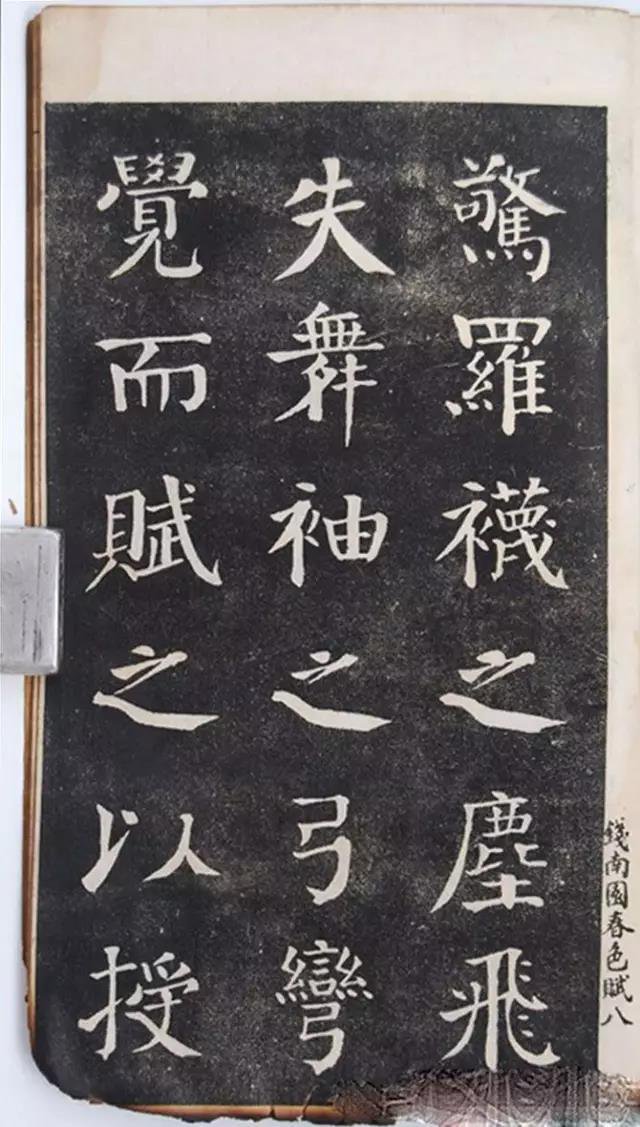 驚羅襪之塵飛
失舞袖之弓彎
覺而賦之以授
錢南園春色賦八